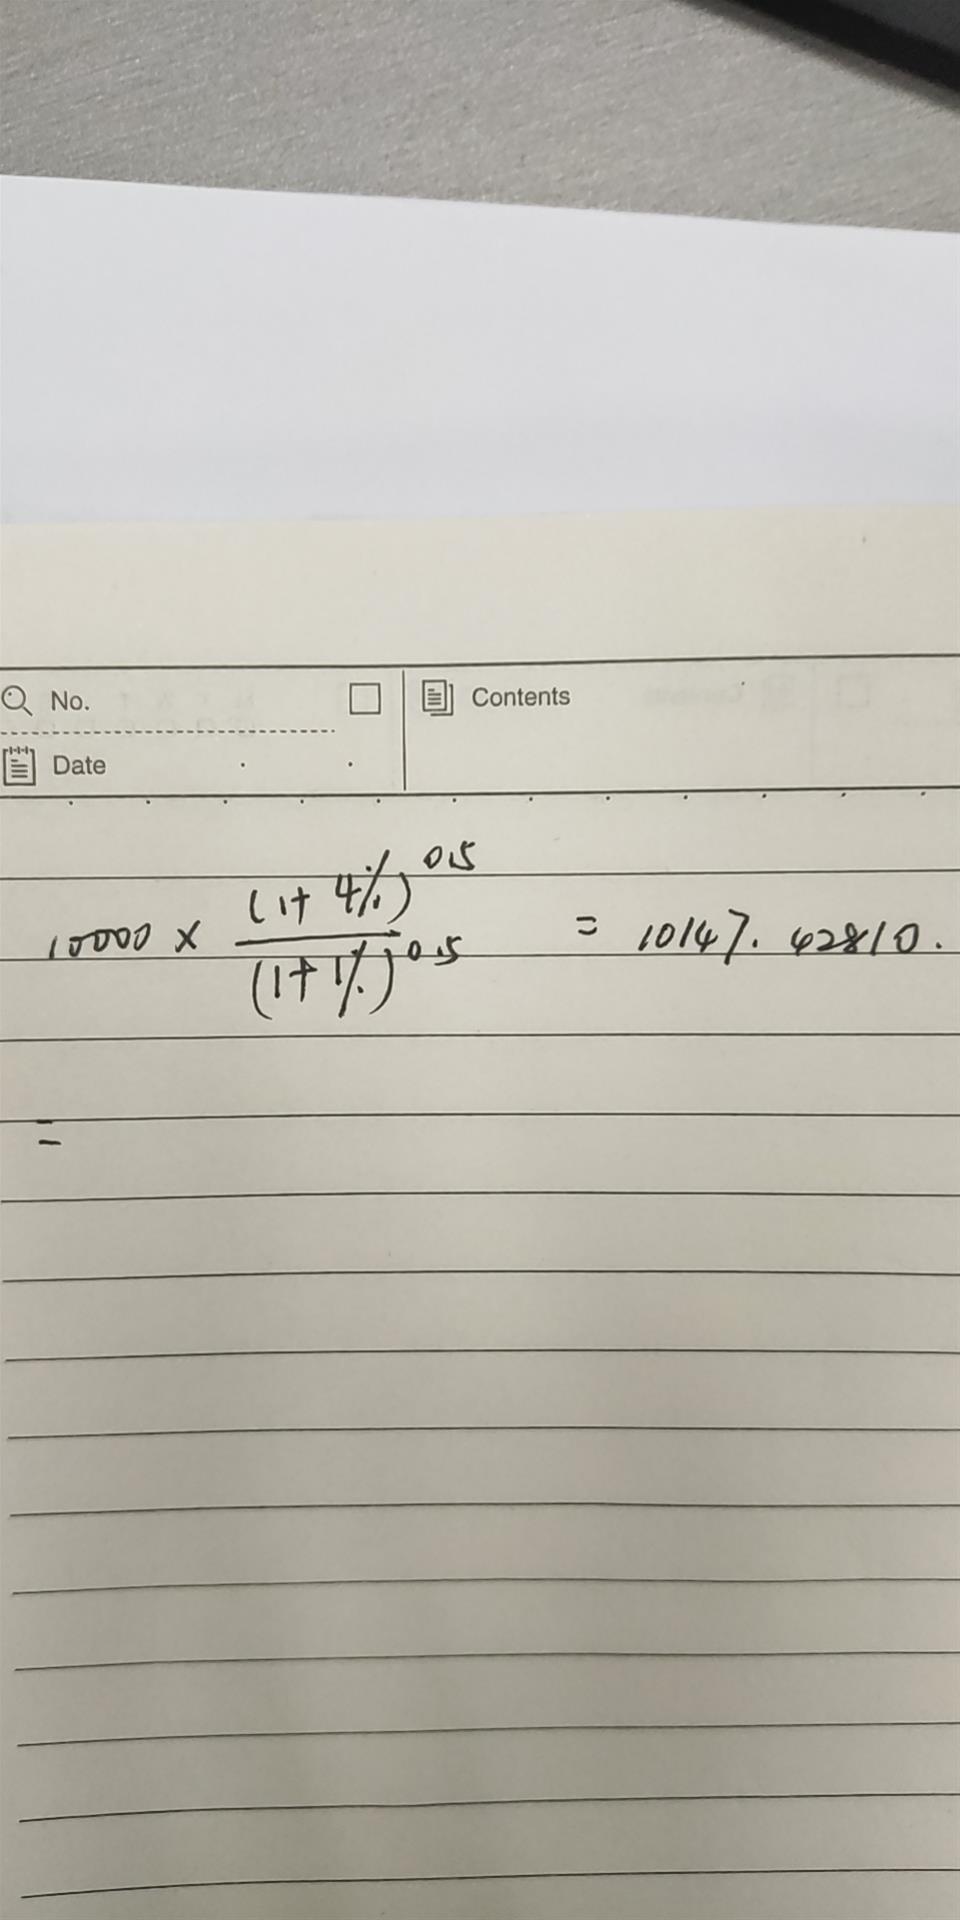 No.
Contents
Date
10000 × (1+4%)^0.5 / (1+1%)^0.5 = 10147.42810.
=